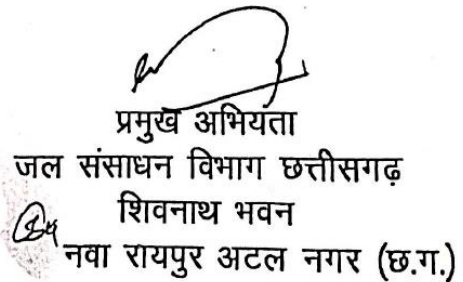 प्रमुख अभियंता
जल संसाधन विभाग छत्तीसगढ़
शिवनाथ भवन
नवा रायपुर अटल नगर (छ.ग.)